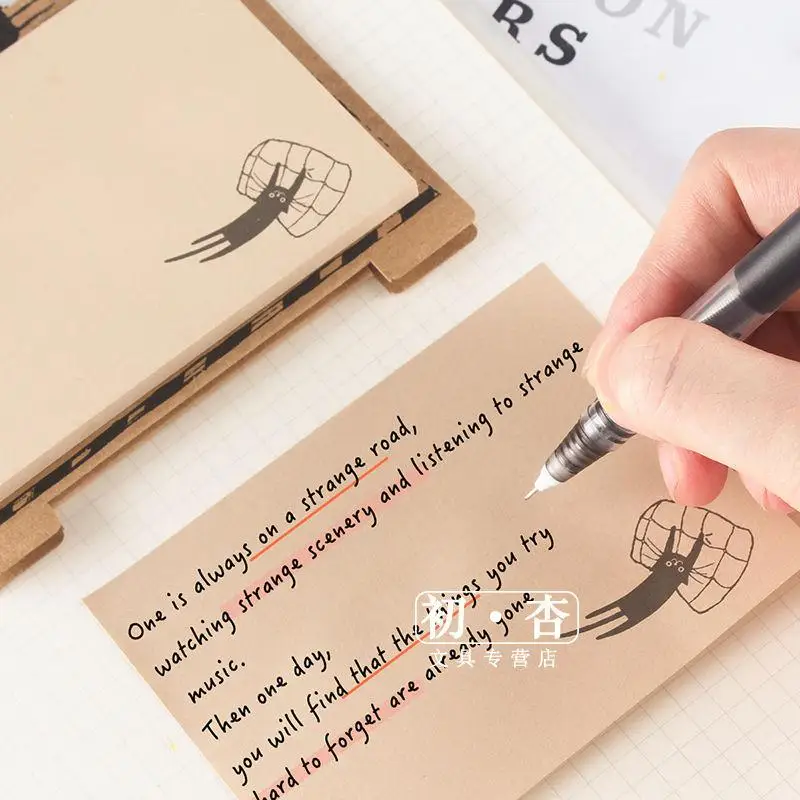 RS
ON
One is always on a strange road,
watching strange scenery and listening to strange
music.
Then one day,
you will find that the things you try
hard to forget are already gone
初·杏
文具专营店